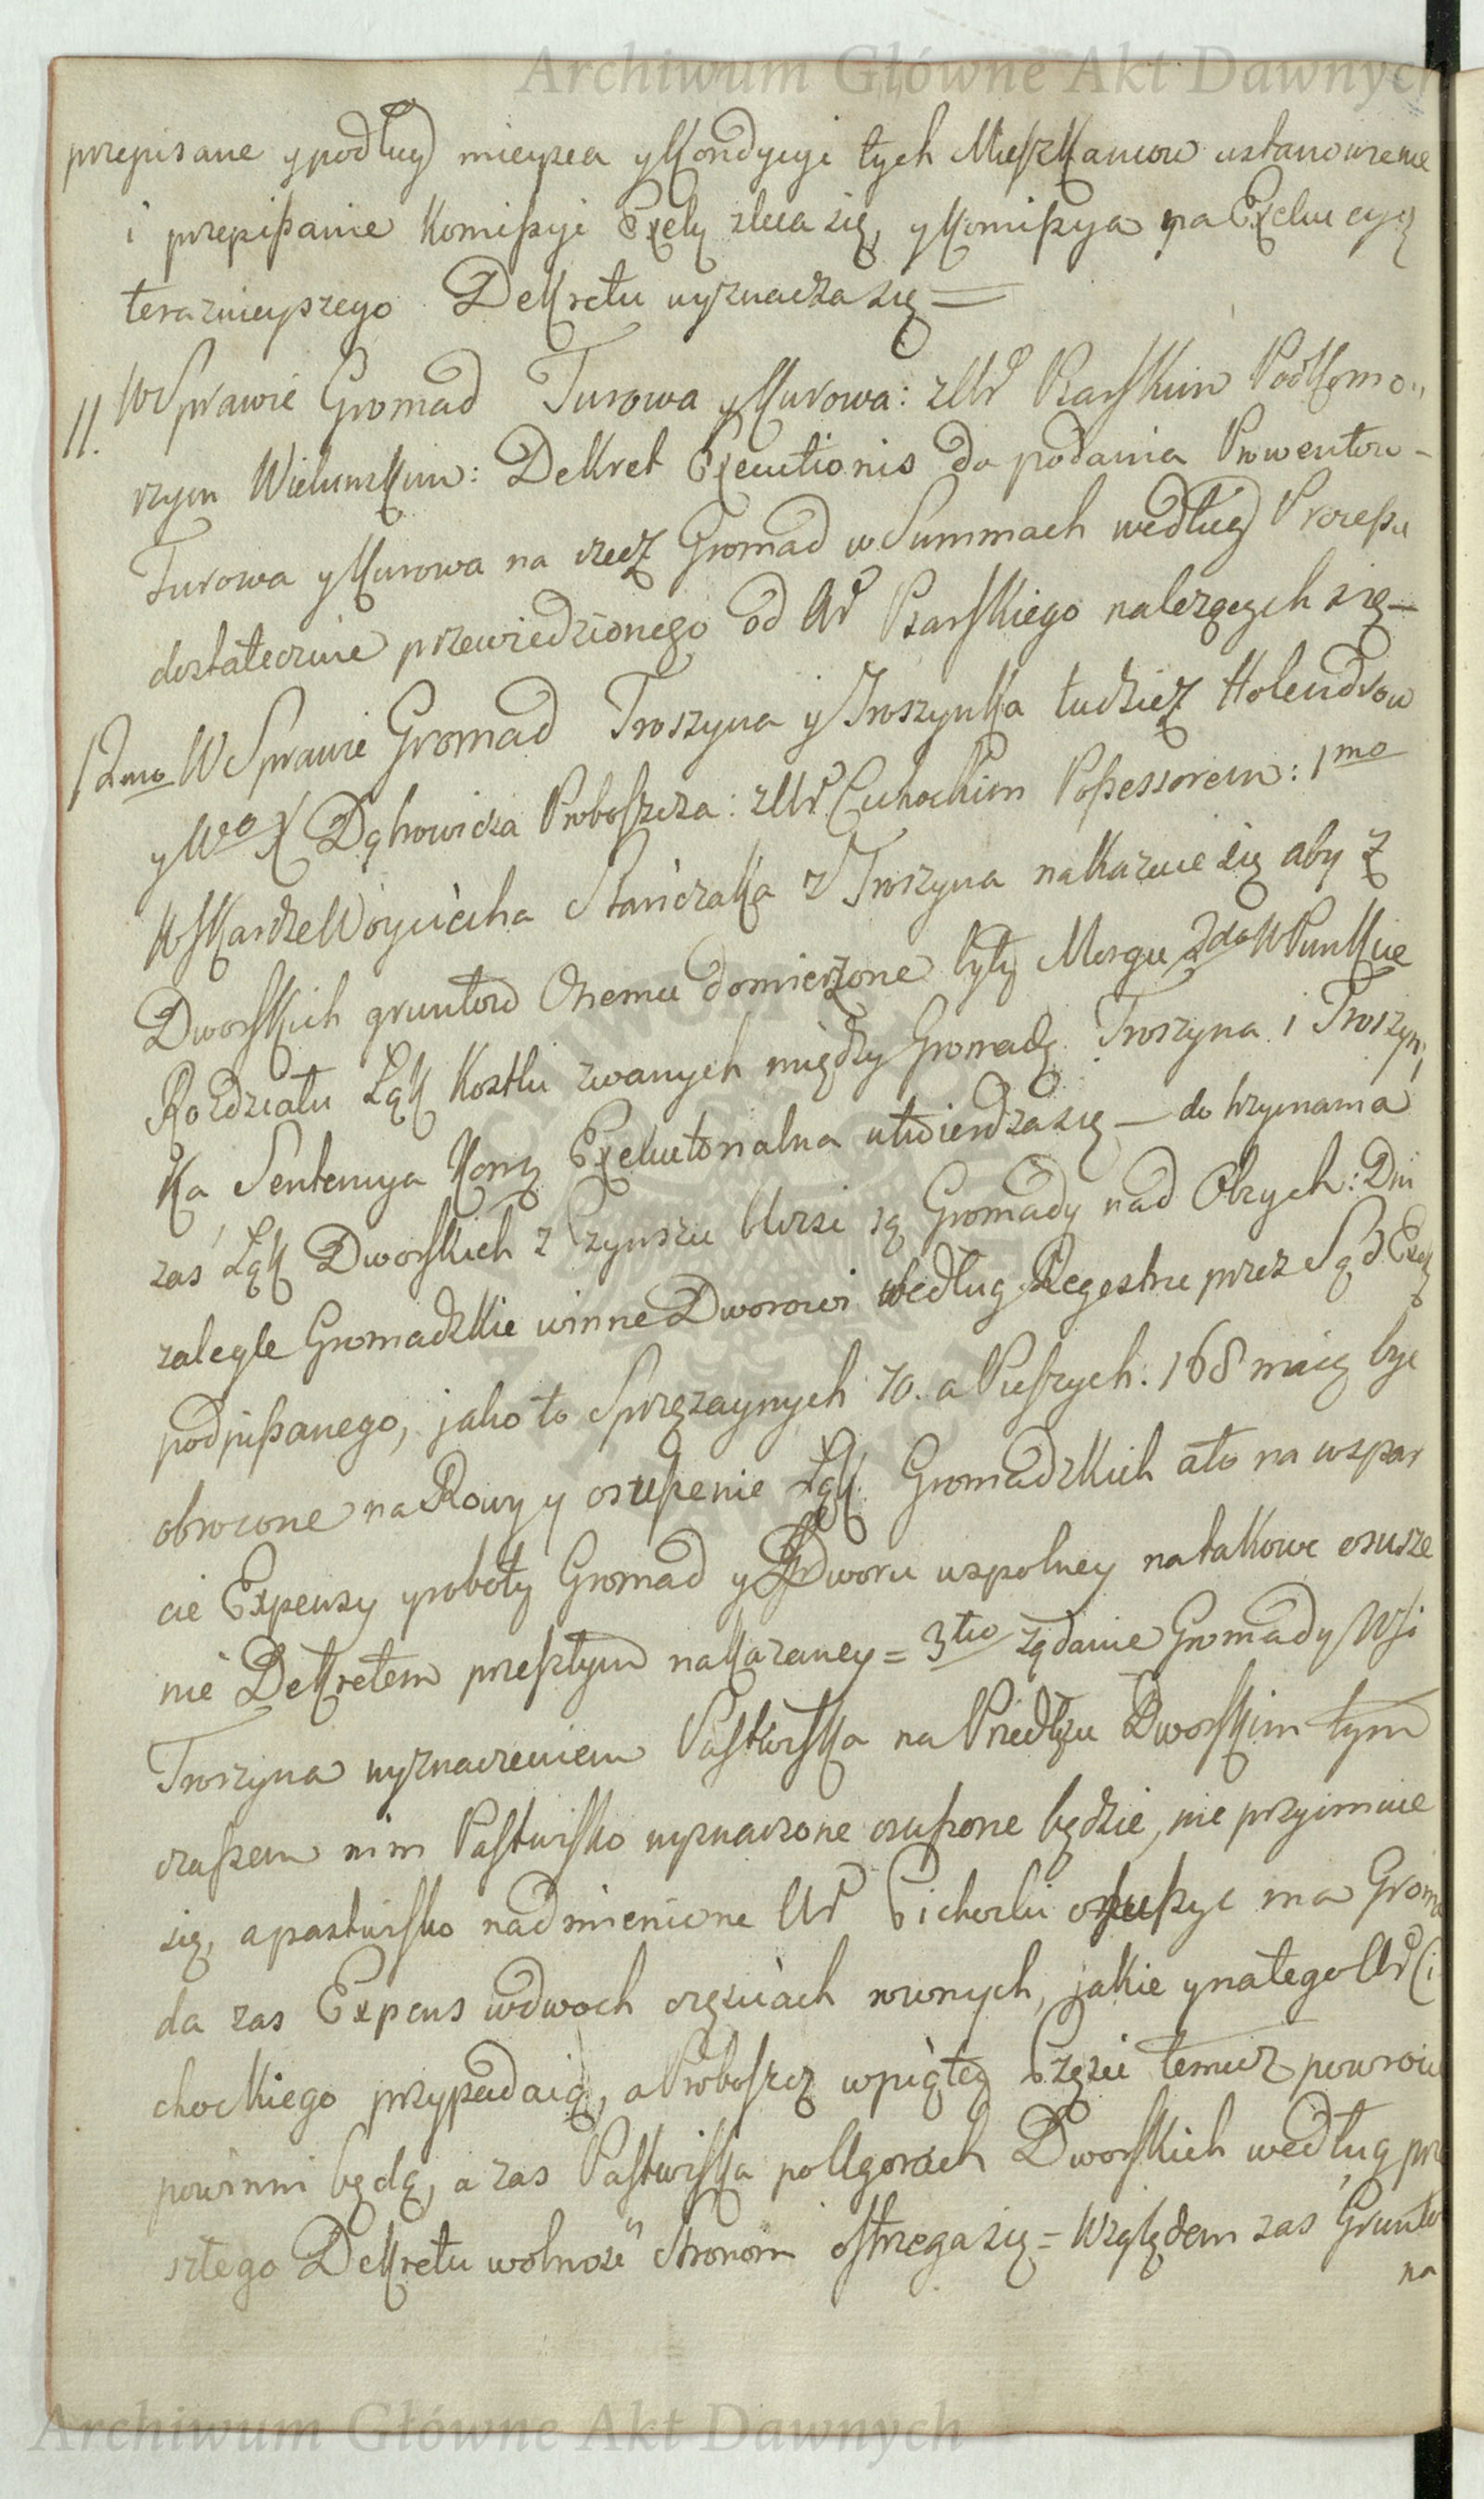 Archiwum Główne Akt Dawnych
przepisane y podług mieysca y Kondycyi tych Mieszkancow ustanowienie
i przepisanie Komissyi Exely zleca się, y Komissya na Exekucyą
teraznieyszego Dekretu wyznacza się =
11. W Sprawie Gromad Turowa y Kurowa: z Ur Psarskim Podkomo„
rzym Wielunskim: Dekret Executionis do podania Prowentow -
Turowa y Kurowa na rzecz Gromad w Summach według Procesu
dostatecznie przewiedzionego od Ur Psarskiego należących się —
12mo W Sprawie Gromad Troszyna y Troszynka tudzież Holendrow
y Wo X Dąbrowicza Proboszcza: z Ur Cichockim Possessorem: 1mo
W Skardze Woyciecha Stańczaka z Troszyna nakazuie się aby z
Dworskich gruntow Onemu domierzone były Morgu 2do W Punkcie
Rozdziału Łąk Kostki zwanych między Gromadą Troszyna i Troszyn,
ka Sentencya Komy Exekutorialna utwierdza się — do trzymania
zaś Łąk Dworskich z Czynszu blizsi są Gromady nad Obcych: Dni
zaległe Gromadzkie winne Dworowi według Regestru przez Sąd Exey
podpisanego, jako to Sprzężaynych 70. a Pieszych: 168 maią byc
obrocone na Rowy y osuszenie Łąk Gromadzkich a to na wspar
cie Expensy y roboty Gromad y Dworu wspolney na takowe osusze
nie Dekretem przeszłym nakazaney = 3tio żądanie Gromady Wsi
Troszyna wyznaczeniem Pastwiska na Dworskim tym
czasem nim Pastwisko wyznaczone osuszone będzie, nie przyimuie
się, a pastwisko nadmienione Ur Cichocki osuszyc ma Groma
da zas Expens w dwoch częściach rownych, jakie y na tego Ur Ci
chockiego przypadaią, a Proboszcz w piątey Części temuz powroci
powinni będą, a zas Pastwiska po Ugorach Dworskich według prze
szłego Dekretu wolność Stronom ostrzega się = Względem zas Gruntu
na
Archiwum Główne Akt Dawnych